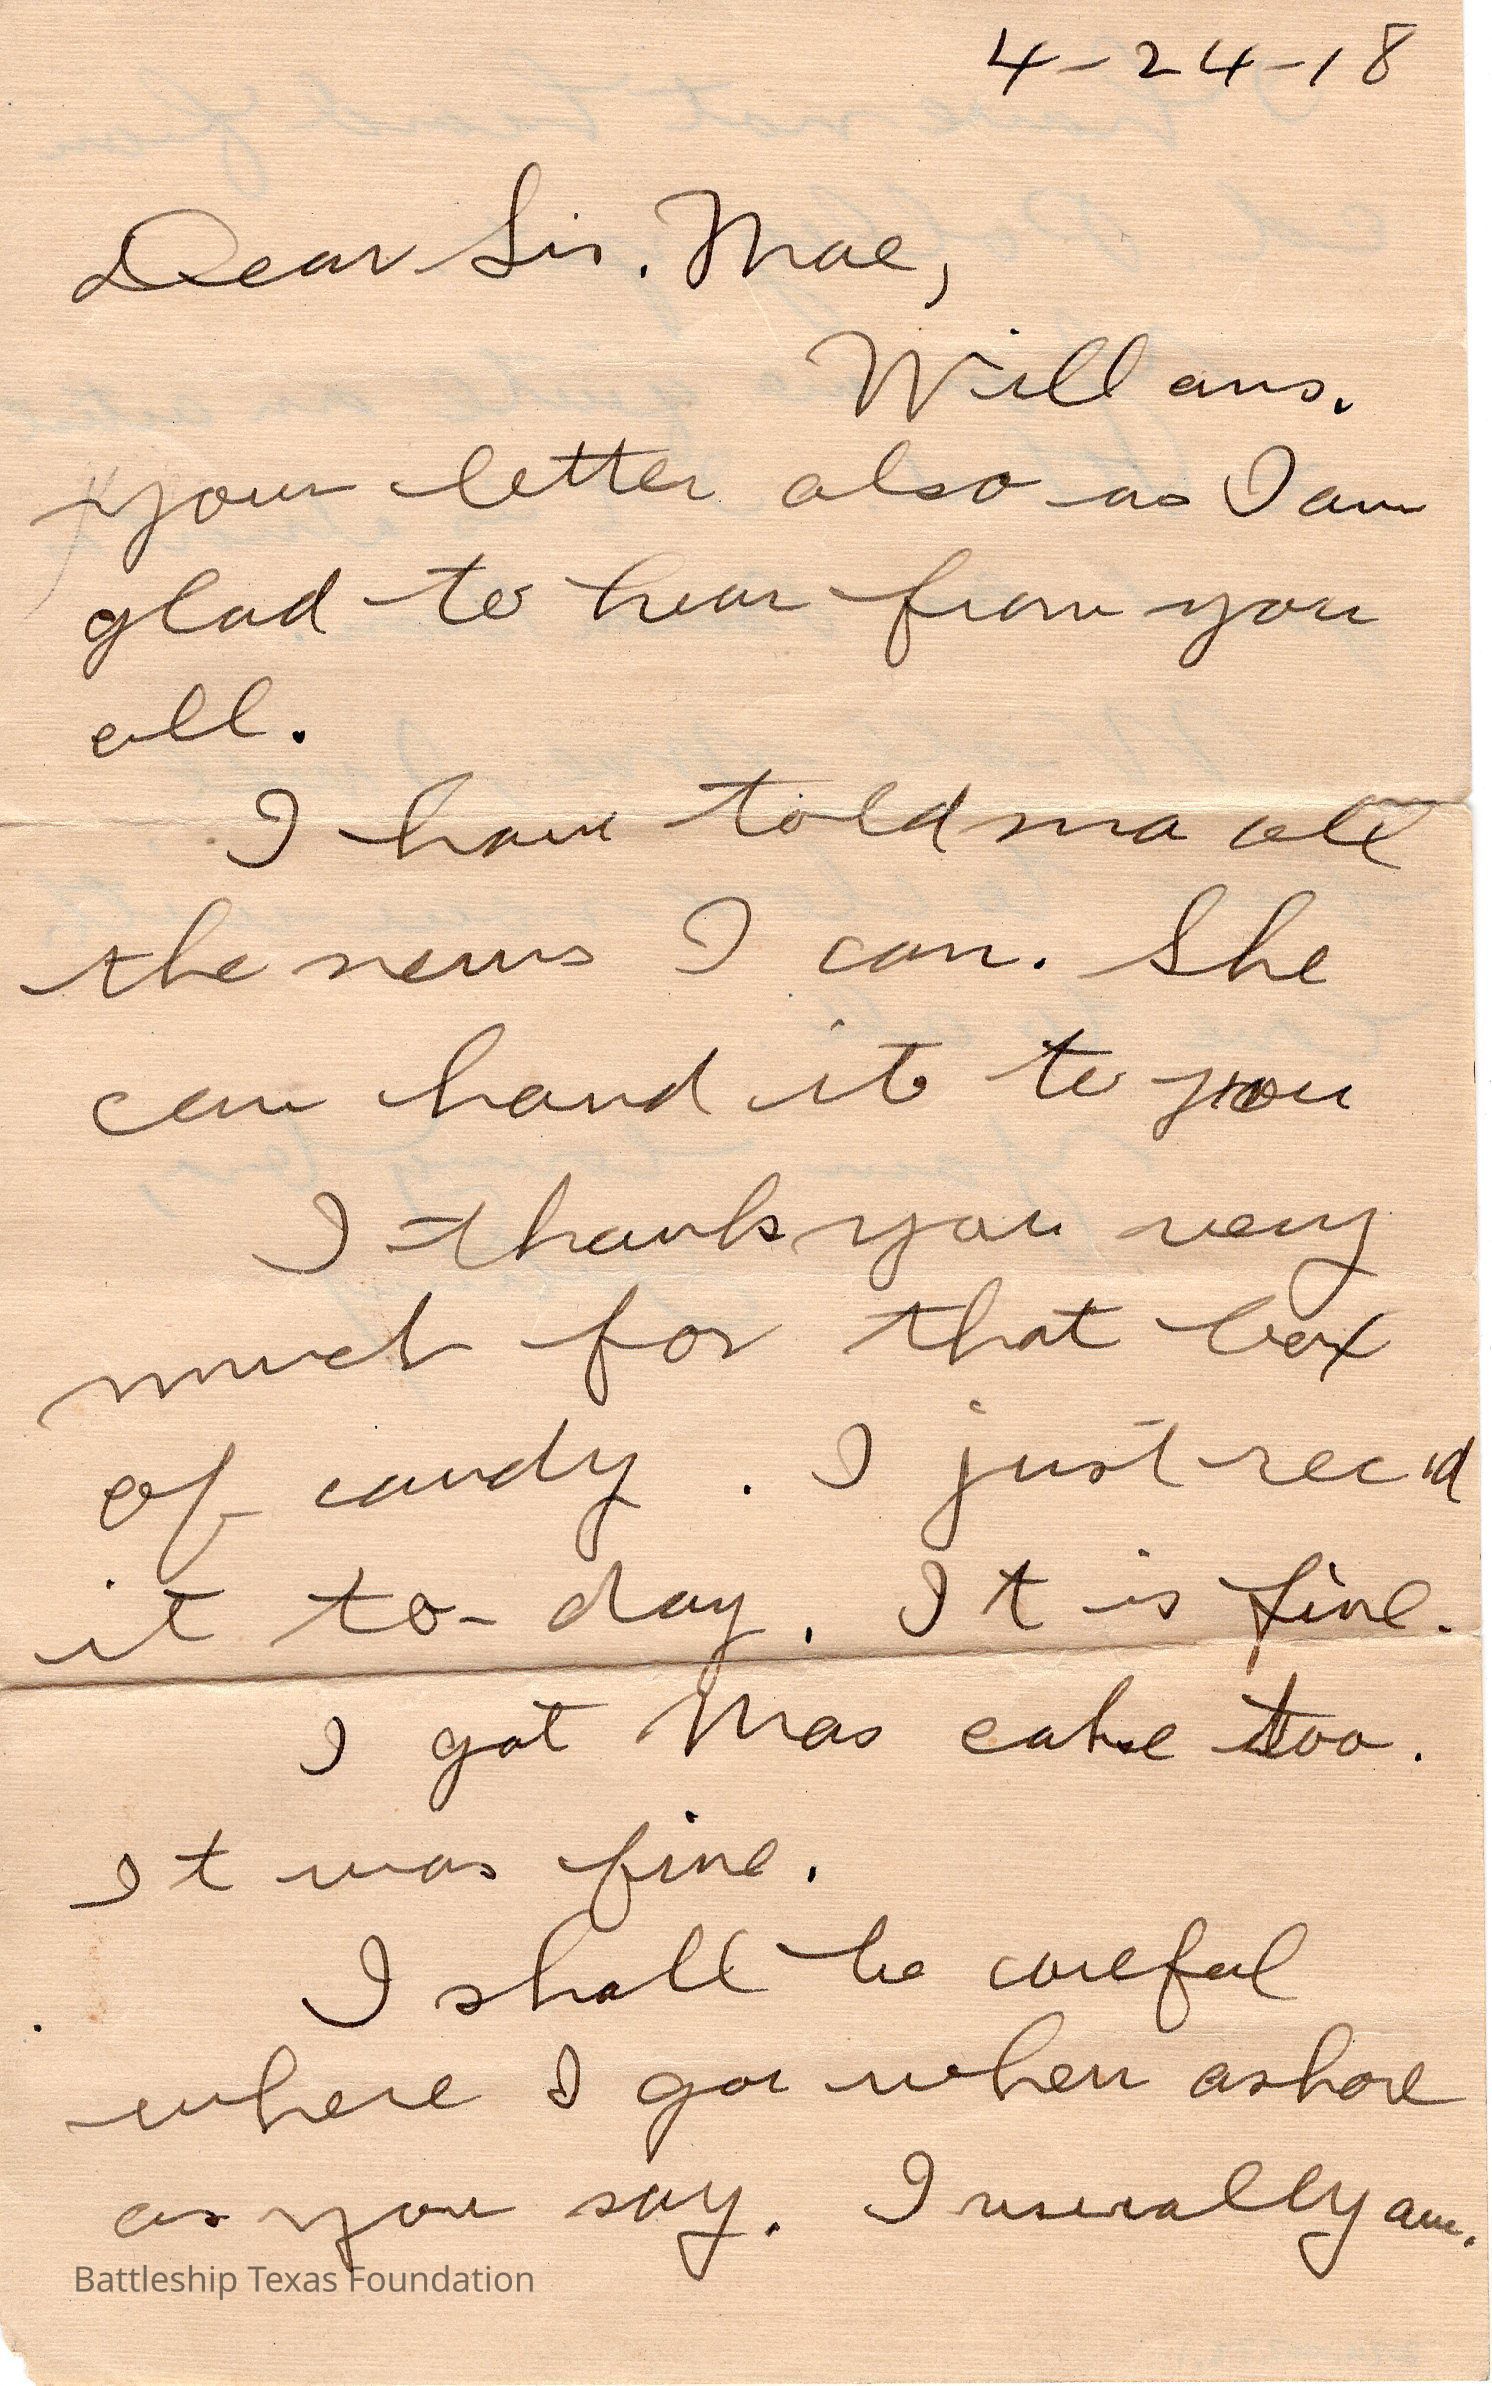 4-24-18
Dear Sis. Mae,
Will ans.
your letter also as I am
glad to hear from you
all.
I have told ma all
the news I can. She
can hand it to you
I thank you very
much for that box
of candy. I just rec'd
it to-day. It is fine.
I got Mas cake too.
It was fine.
I shall be careful
where I go when ashore
as you say. I usually am.
Battleship Texas Foundation